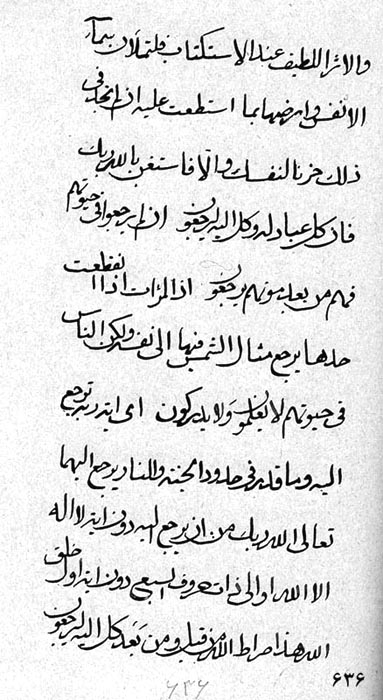 والاثر اللطيف عند الاستكتاب فلتملأن بماء
الانفس وامرضها بما استطعت عليه ان لم تجد في
ذلك حزنا لنفسك والا فاستغن بالله ربك
فان كل عباد له وكل اليه ليرجعون ان لم يرجعوا في حيوتهم
فهم من بعد موتهم يرجعون اذ المرات اذا انقطعت
حدها يرجع مثال الشمس فيها الى نفسها ولكن الناس
في حيوتهم لا يعلمون ولا يدركون اى ايه ربه ترجع
اليه وما قدر في حدود الجنة والنار يرجع اليهما
تعالى الله ربك من ان يرجع اليه دون اية لا اله
الا الله او الى ذات حروف السبع دون اية اول خلق
الله هذا صراط الله من قبل ومن بعد كل اليه ليرجعون
۶۳۶
۶۳۶